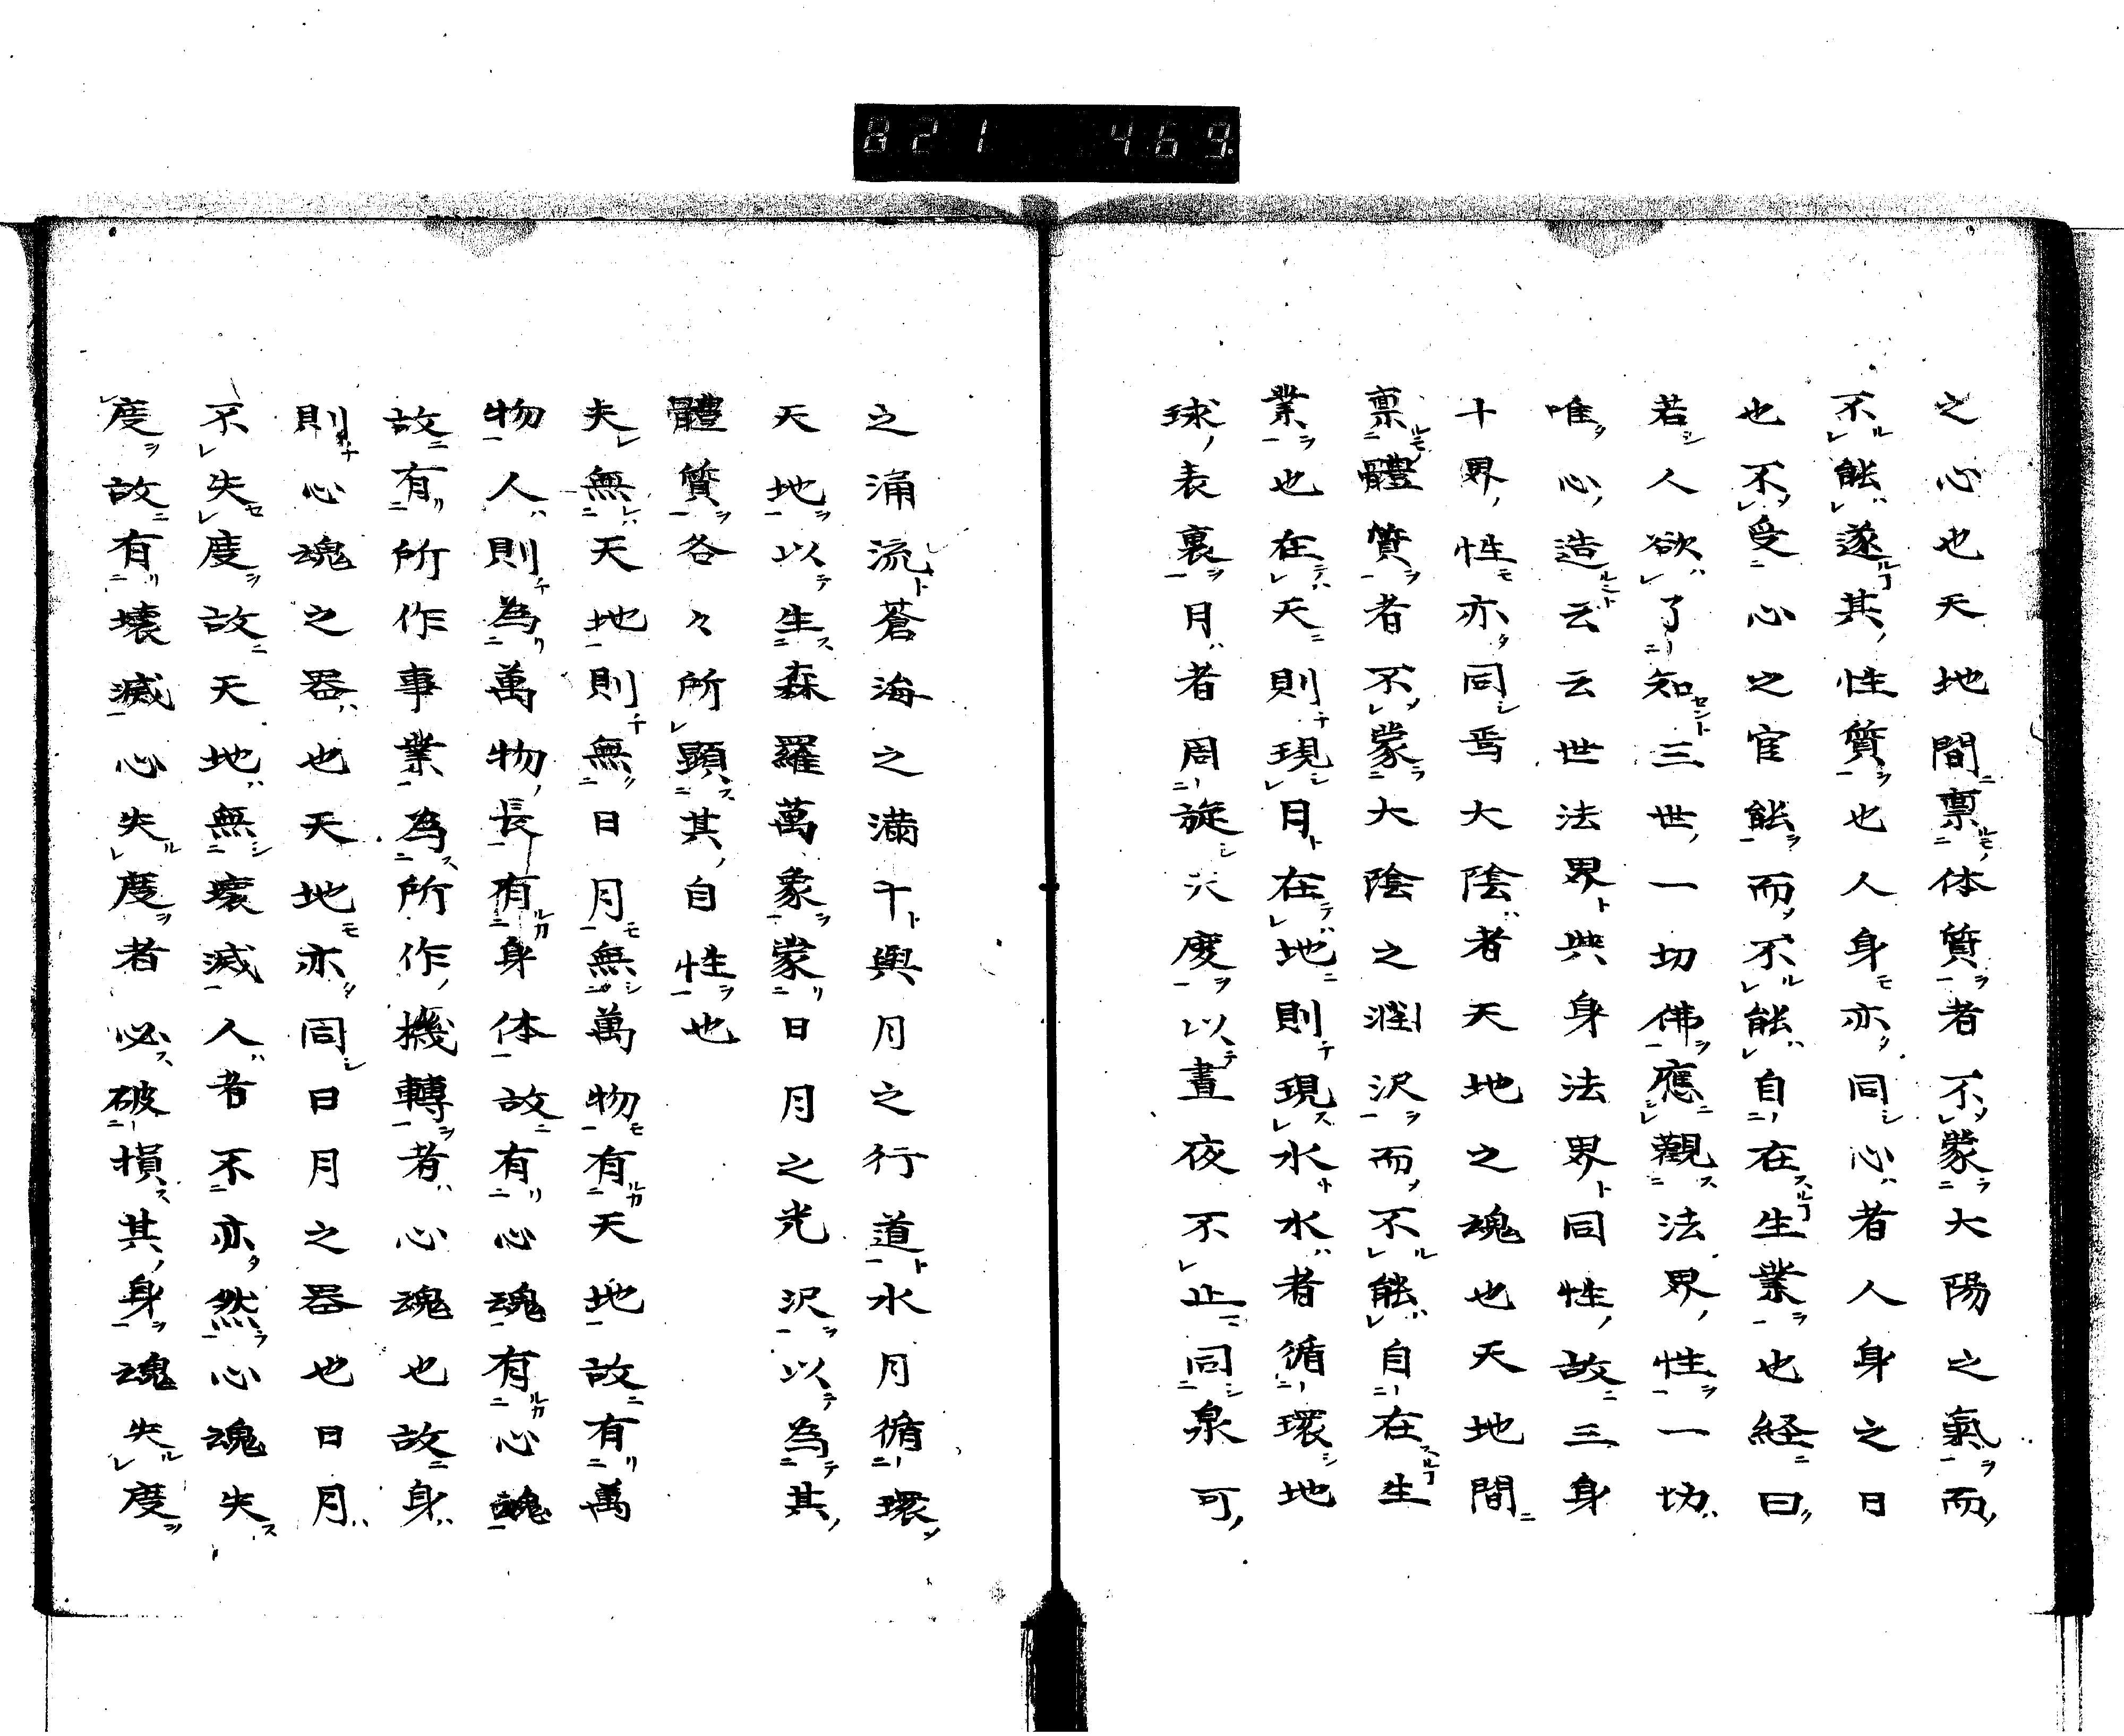 821 469
之心也天地間禀体質者不蒙大陽之氣而
不能遂其性質也人身亦同心者人身之日
也不受心之官能而不能自在生業也経曰
若人欲了知三世一切佛應觀法界性一切
唯心造云云世法界與身法界同性故三身
十界性亦同焉大陰者天地之魂也天地間
禀體質者不蒙大陰之潤沢而不能自在生
業也在天則現月在地則現水水者循環地
球表裏月者周旋六度以晝夜不止同泉可
之涌流蒼海之満干與月之行道水月循環
天地以生森羅萬象蒙日月之光沢以為其
體質各々所顕其自性也
夫無天地則無日月無萬物有天地故有萬
物人則為萬物長有身体故有心魂有心魂
故有所作事業為所作機轉者心魂也故身
則心魂之器也天地亦同日月之器也日月
不失度故天地無壊滅人者不亦然心魂失
度故有壊滅心失度者必破損其身魂失度